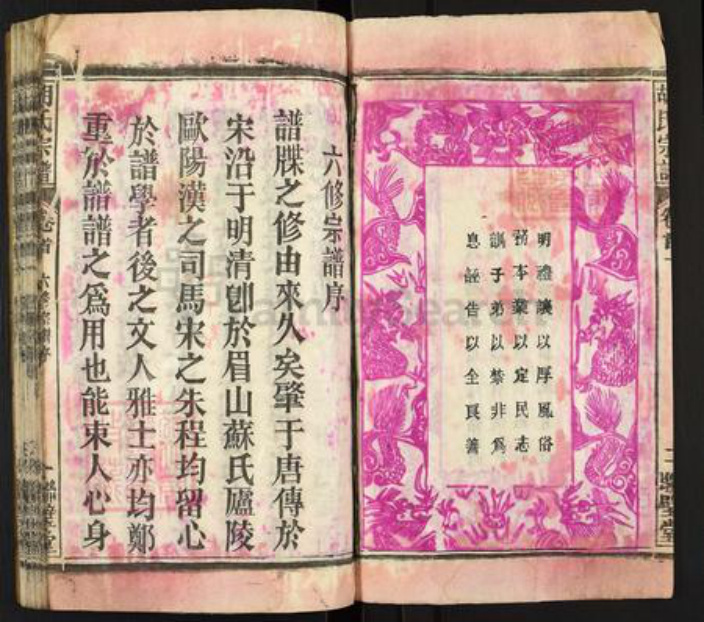 胡氏宗譜
卷首
二
聯璧堂
明禮讓以厚風俗
務本業以定民志
訓子弟以禁非爲
息誣告以全良善
六修宗譜序
譜牒之修由來久矣肇于唐傳於
宋沿于明清卽於眉山蘇氏廬陵
歐陽漢之司馬宋之朱程均留心
於譜學者後之文人雅士亦均鄭
重於譜譜之爲用也能束人心身
胡氏宗譜
卷首
六修宗譜序
一
聯璧堂
FamilySearch